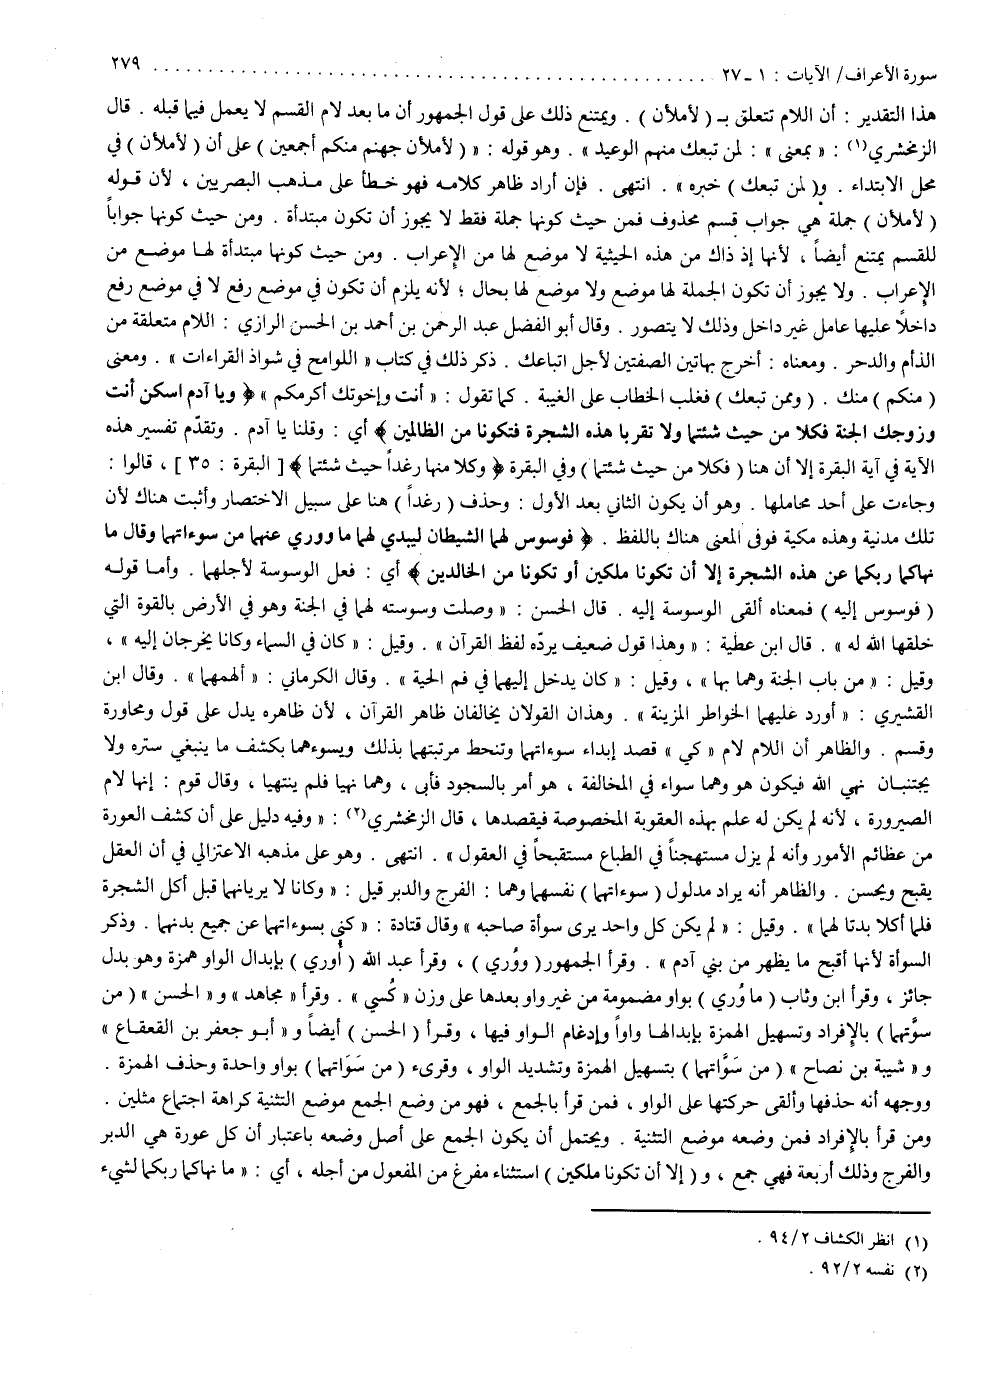 سورة الأعراف/ الآيات : ١ -٢٧ ................................................ ٢٧٩
هذا التقدير : أن اللام تتعلق بـ ( لأملأن ) . ويمتنع ذلك على قول الجمهور أن ما بعد لام القسم لا يعمل فيما قبله . قال
الزمخشري(١) : « بمعنى » : لمن تبعك منهم الوعيد » . وهو قوله : « ( لأملأن جهنم منكم أجمعين ) على أن ( لأملأن ) في
محل الابتداء . و( لمن تبعك ) خبره » . انتهى . فإن أراد ظاهر كلامه فهو خطأ على مذهب البصريين ، لأن قوله
( لأملأن ) جملة هي جواب قسم محذوف فمن حيث كونها جملة فقط لا يجوز أن تكون مبتدأة . ومن حيث كونها جواباً
للقسم يمتنع أيضاً ، لأنها إذ ذاك من هذه الحيثية لا موضع لها من الإعراب . ومن حيث كونها مبتدأة لهـا موضـع من
الإعراب . ولا يجوز أن تكون الجملة لها موضع ولا موضع لها بحال ؛ لأنه يلزم أن تكون في موضع رفع لا في موضع رفع
داخلاً عليها عامل غير داخل وذلك لا يتصور . وقال أبو الفضل عبد الرحمن بن أحمد بن الحسن الرازي : اللام متعلقة من
الذأم والدحر . ومعناه : أخرج بهاتين الصفتين لأجل اتباعك . ذكر ذلك في كتاب « اللوامح في شواذ القراءات » . ومعنى
( منكم ) منك . ( وممن تبعك ) فغلب الخطاب على الغيبة . كما تقول : « أنت وإخوتك أكرمكم » ﴿ ويا آدم اسكن أنت
وزوجك الجنة فكلا من حيث شئتما ولا تقربا هذه الشجرة فتكونا من الظالمين ﴾ أي : وقلنا يا آدم . وتقدّم تفسير هذه
الآية في آية البقرة إلا أن هنا ( فكلا من حيث شئتما ) وفي البقرة ﴿ وكلا منها رغداً حيث شئتما ﴾ [ البقرة : ٣٥ ] ، قالوا :
وجاءت على أحد محاملها . وهو أن يكون الثاني بعد الأول : وحذف ( رغداً ) هنا على سبيل الاختصار وأثبت هناك لأن
تلك مدنية وهذه مكية فوفى المعنى هناك باللفظ . ﴿ فوسوس لهما الشيطان ليبدي لهما ما ووري عنهما من سوءاتهما وقال ما
نهاكما ربكما عن هذه الشجرة إلا أن تكونا ملكين أو تكونا من الخالدين ﴾ أي : فعل الوسوسة لأجلهما . وأمـا قولـه
( فوسوس إليه ) فمعناه ألقى الوسوسة إليه . قال الحسن : « وصلت وسوسته لهما في الجنة وهو في الأرض بالقوة التي
خلقها الله له » . قال ابن عطية : « وهذا قول ضعيف يردّه لفظ القرآن » . وقيل : « كان في السماء وكانا يخرجان إليه » ،
وقيل : « من باب الجنة وهما بها » ، وقيل : « كان يدخل إليهما في فم الحية » . وقال الكرماني : « ألهمهما » . وقال ابن
القشيري : « أورد عليهما الخواطر المزينة » . وهذان القولان يخالفان ظاهر القرآن ، لأن ظاهره يدل على قول ومحاورة
وقسم . والظاهر أن اللام لام « كي » قصد إبداء سوءاتهما وتنحط مرتبتهما بذلك ويسوءهما بكشف ما ينبغي ستره ولا
يجتنبـان نهي الله فيكون هو وهما سواء في المخالفة ، هو أمر بالسجود فأبى ، وهما نهيا فلم ينتهيا ، وقال قوم : إنها لام
الصيرورة ، لأنه لم يكن له علم بهذه العقوبة المخصوصة فيقصدها ، قال الزمخشري(٢) : « وفيه دليل على أن كشف العورة
من عظائم الأمور وأنه لم يزل مستهجناً في الطباع مستقبحاً في العقول » . انتهى . وهو على مذهبه الاعتزالي في أن العقل
يقبح ويحسن . والظاهر أنه يراد مدلول ( سوءاتهما ) نفسهما وهما : الفرج والدبر قيل : « وكانا لا يريانهما قبل أكل الشجرة
فلما أكلا بدتا لهما » . وقيل : « لم يكن كل واحد يرى سوأة صاحبه » وقال قتادة : « كني بسوءاتهما عن جميع بدنهما . وذكر
السوأة لأنها أقبح ما يظهر من بني آدم » . وقرأ الجمهور ( وُوري ) ، وقرأ عبد الله ( أُوري ) بإبدال الواو همزة وهو بدل
جائز ، وقرأ ابن وثاب ( ما وُري ) بواو مضمومة من غير واو بعدها على وزن « كُسي » . وقرأ « مجاهد » و « الحسن » ( من
سوَّتهما ) بالإفراد وتسهيل الهمزة بإبدالهـا واواً وإدغام الـواو فيها ، وقـرأ ( الحسن ) أيضاً و « أبـو جعفر بن القعقـاع »
و « شيبة بن نصاح » ( من سَوَّاتهما ) بتسهيل الهمزة وتشديد الواو ، وقرىء ( من سَوَاتهما ) بواو واحدة وحذف الهمزة .
ووجهه أنه حذفها وألقى حركتها على الواو ، فمن قرأ بالجمع ، فهو من وضع الجمع موضع التثنية كراهة اجتماع مثلين .
ومن قرأ بالإفراد فمن وضعه موضع التثنية . ويحتمل أن يكون الجمع على أصل وضعه باعتبار أن كل عورة هي الدبر
والفرج وذلك أربعة فهي جمع ، و ( إلا أن تكونا ملكين ) استثناء مفرغ من المفعول من أجله ، أي : « ما نهاكما ربكما لشيء
(١) انظر الكشاف ٩٤/٢ .
(٢) نفسه ٩٢/٢ .